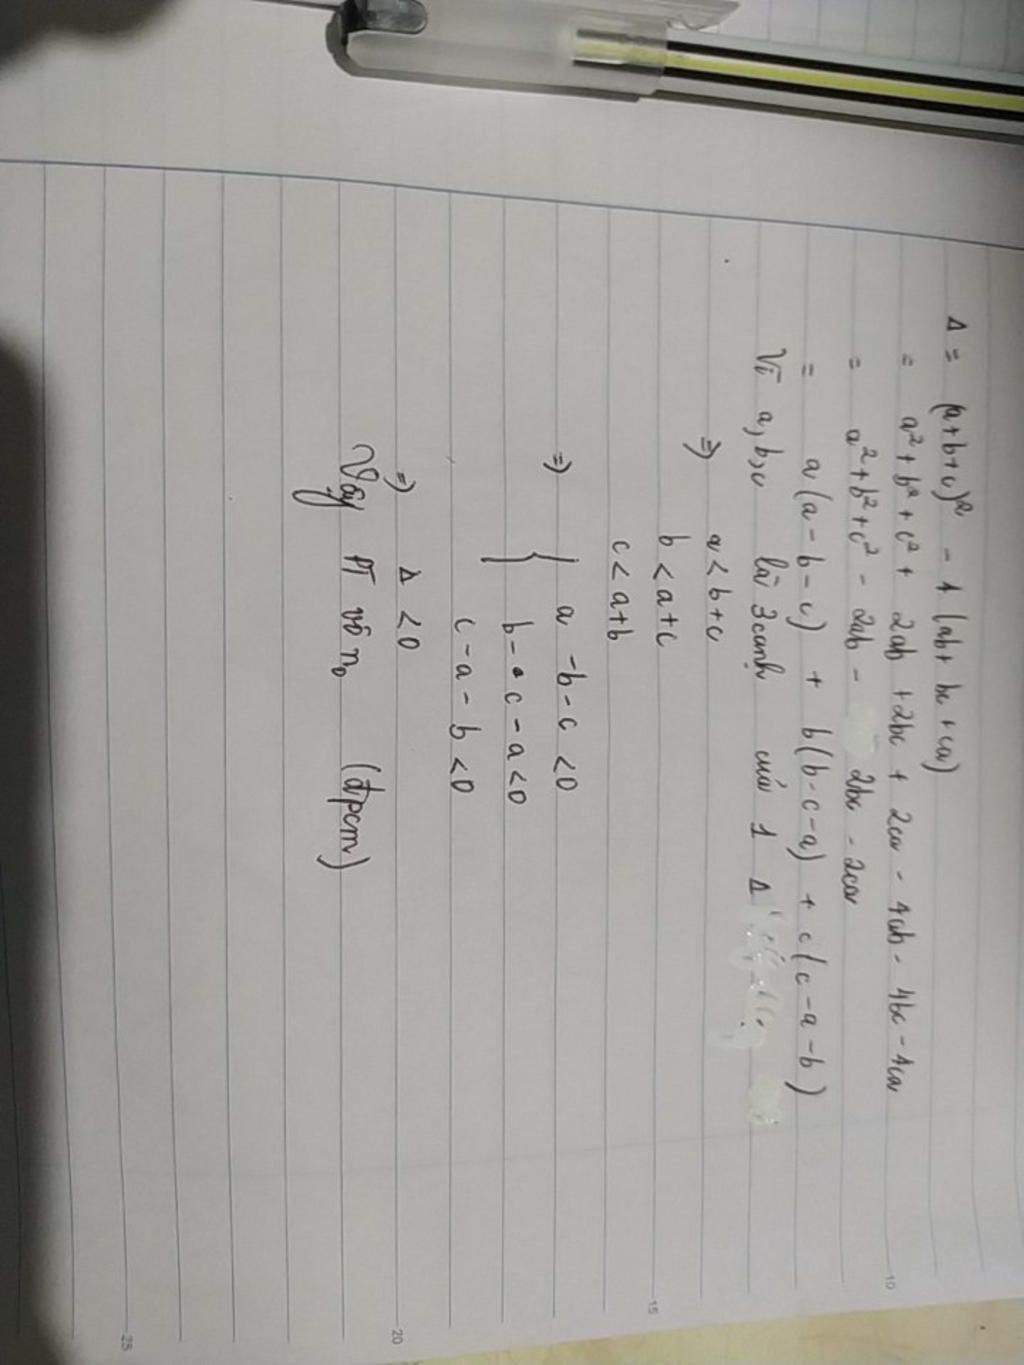 Δ = (a+b+c)² - 4(ab+bc+ca)
= a²+b²+c²+ 2ab +2bc + 2ca - 4ab - 4bc - 4ca
= a²+b²+c² - 2ab - 2bc - 2ca
= a(a-b-c) + b(b-c-a) + c(c-a-b)
Vì a,b,c là 3 cạnh của 1 Δ
⇒ a<b+c
b<a+c
c<a+b
⇒ { a-b-c<0
b-c-a<0
c-a-b<0
⇒ Δ<0
Vậy PT vô n₀ (đpcm)
10
15
20
25